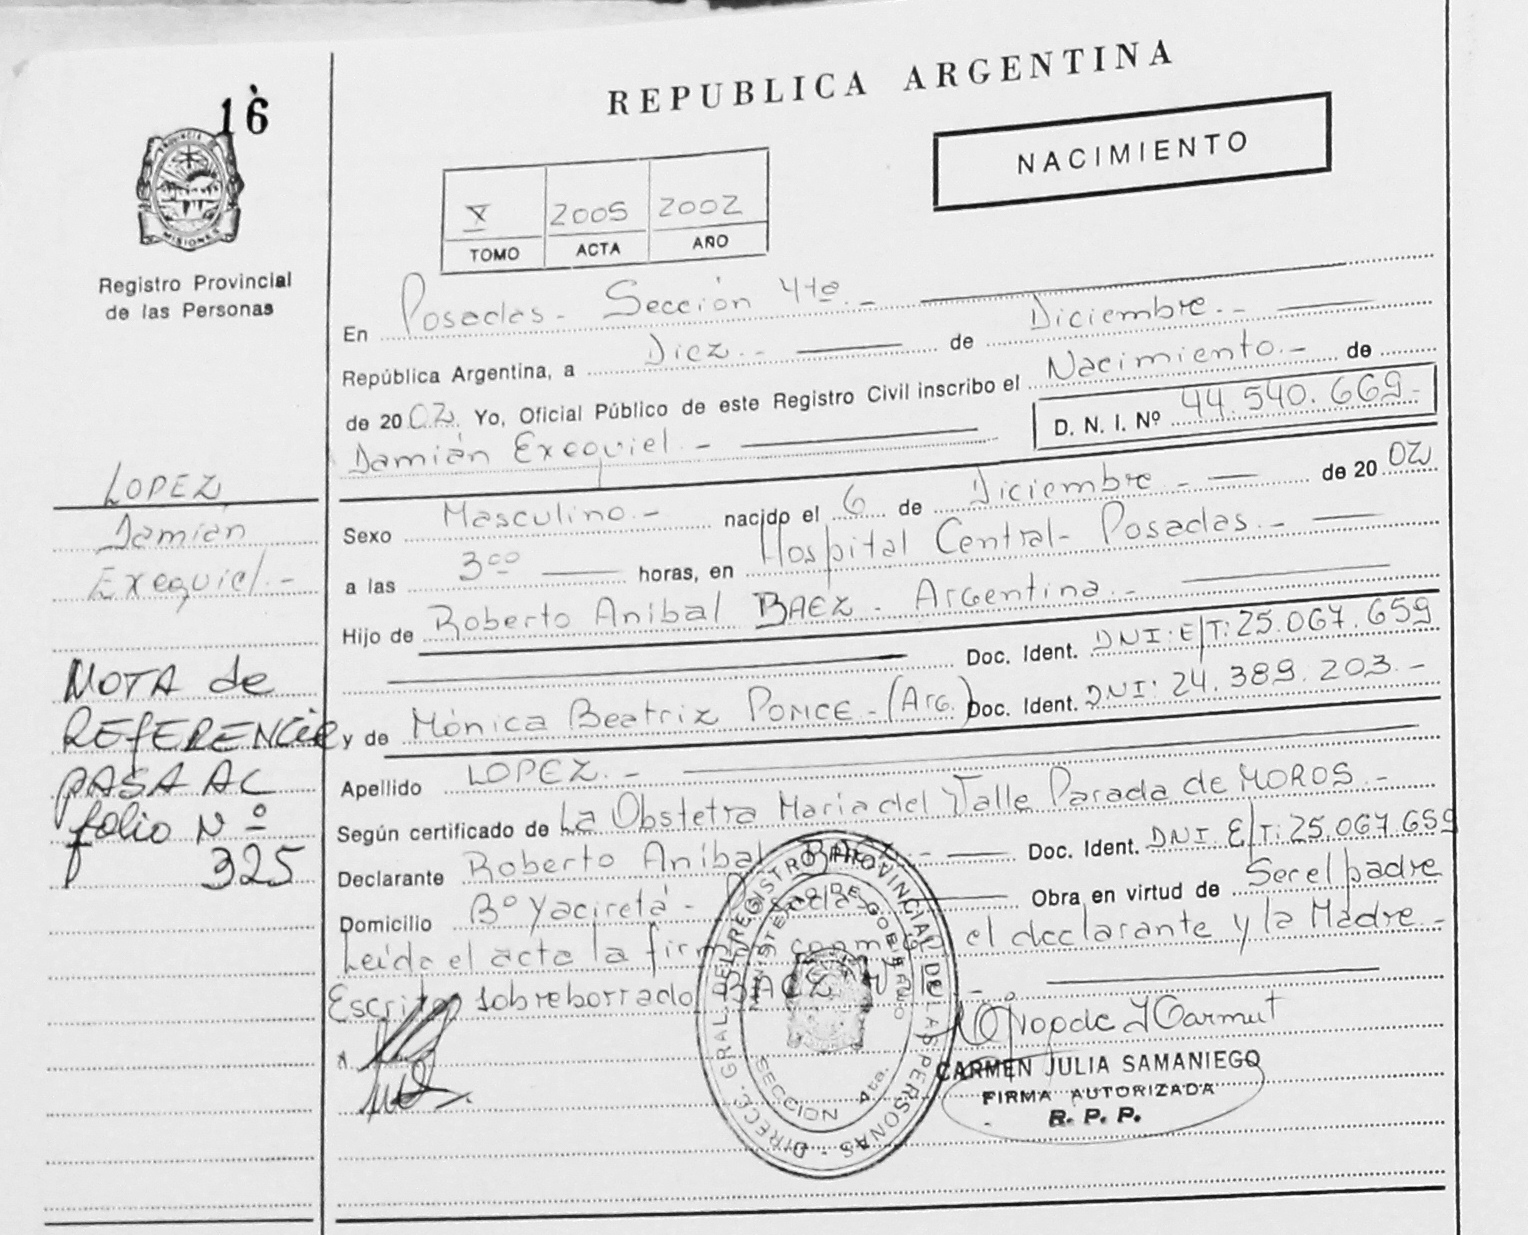 16
PROVINCIA
MISIONES
Registro Provincial
de las Personas
REPUBLICA ARGENTINA
NACIMIENTO
X 2005 2002
TOMO ACTA AÑO
En Posadas.- Sección 4ta.-
República Argentina, a Diez.- de Diciembre.-
de 2002. Yo, Oficial Público de este Registro Civil inscribo el Nacimiento.- de
Damián Exequiel.- D. N. I. Nº 44.540.669.-
LOPEZ
Damián
Exequiel.-
Sexo Masculino.- nacido el 6 de Diciembre.- de 2002
a las 3 00 horas, en Hospital Central- Posadas.-
Hijo de Roberto Anibal BAEZ.- Argentina.-
Doc. Ident. DNI: E/T: 25.067.659
y de Mónica Beatriz PONCE-(Arg.) Doc. Ident. DNI: 24.389.203.-
Apellido LOPEZ.-
Según certificado de La Obstetra Maria del Valle Parada de MOROS.-
Declarante Roberto Aníbal BAEZ.- Doc. Ident. DNI. E/T: 25.067.659
Domicilio Bº Yaciretá- Posadas Obra en virtud de Ser el padre
Leída el acta la firman conmigo el declarante y la Madre-
Escrito sobreborrado BAEZ Vale.-
NOTA de
REFERENCIA
PASA AL
folio Nº
325
DIRECC. GRAL. DEL REGISTRO PROVINCIAL DE LAS PERSONAS
MINISTERIO DE GOBIERNO
SECCION 4ta.
CARMEN JULIA SAMANIEGO
FIRMA AUTORIZADA
R. P. P.